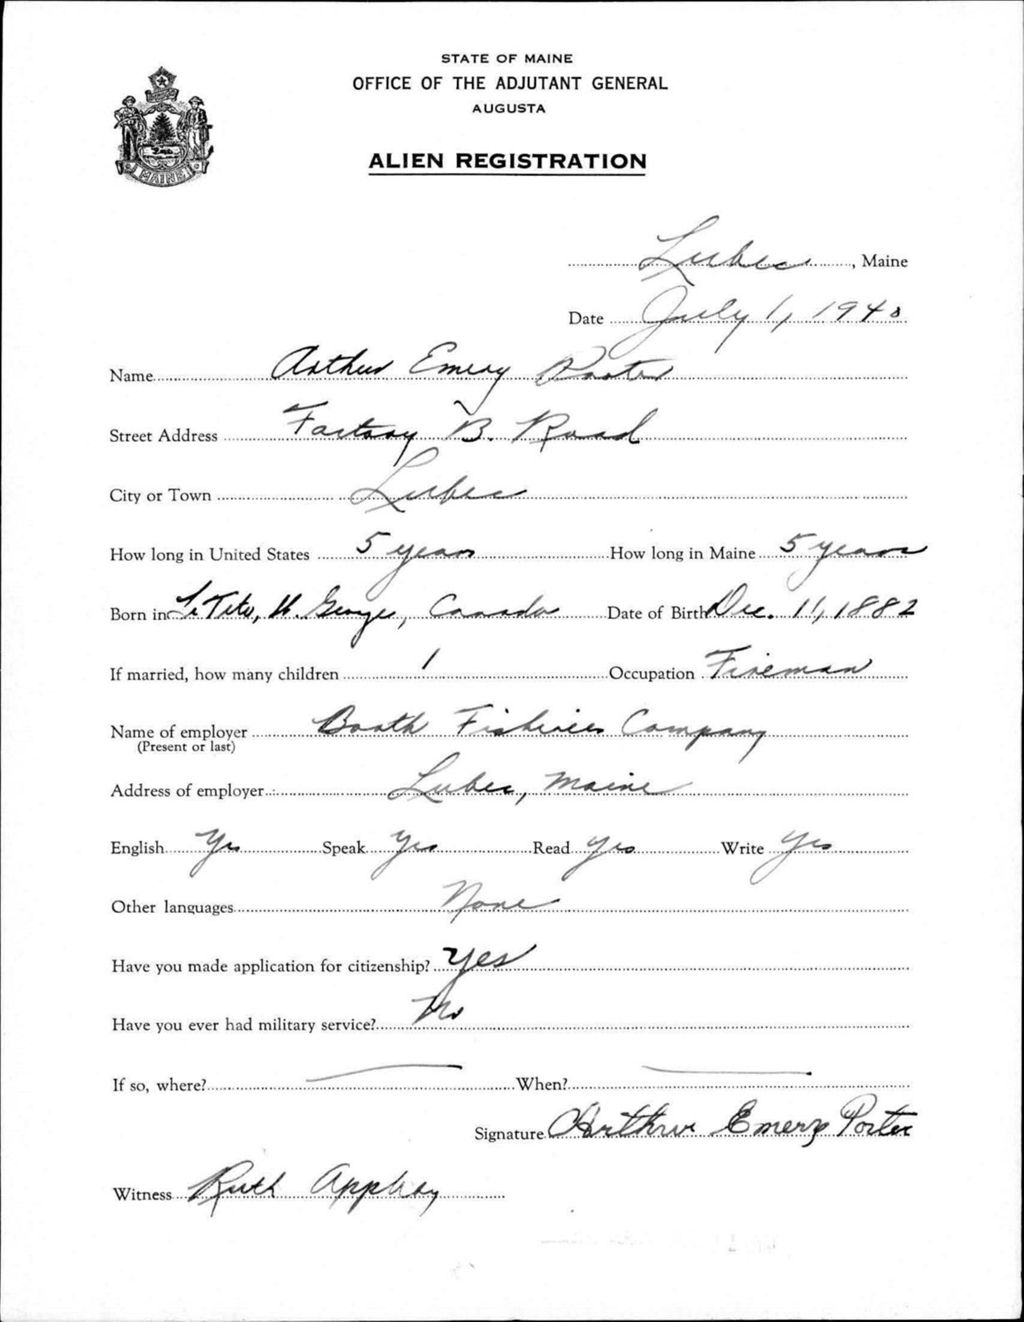 STATE OF MAINE
OFFICE OF THE ADJUTANT GENERAL
AUGUSTA
MAINE
ALIEN REGISTRATION
Lubec, Maine
Date July 1, 1940
Name Arthur Emery Porter
Street Address Factory B. Road
City or Town Lubec
How long in United States 5 years How long in Maine 5 years
Born in George, Canada Date of Birth Dec. 11, 1882
If married, how many children 1 Occupation Fireman
Name of employer Booth Fisheries Company
(Present or last)
Address of employer Lubec, Maine
English Yes Speak Yes Read Yes Write Yes
Other languages None
Have you made application for citizenship? Yes
Have you ever had military service? No
If so, where? When?
Signature Arthur Emery Porter
Witness Ruth